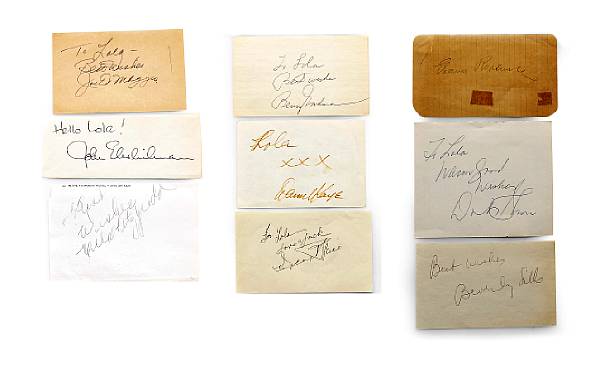 To Lola -
Best Wishes
Joe Di Maggio
Hello Lola!
John Ehrlichman
Best
Wishes
Ella Fitzgerald
To Lola
Best wishes
Benny Goodman
Lola
XXX
Danny Kaye
To Lola
Good luck
To Lola
Warm Good
Wishes
Best Wishes
Beverly Sills